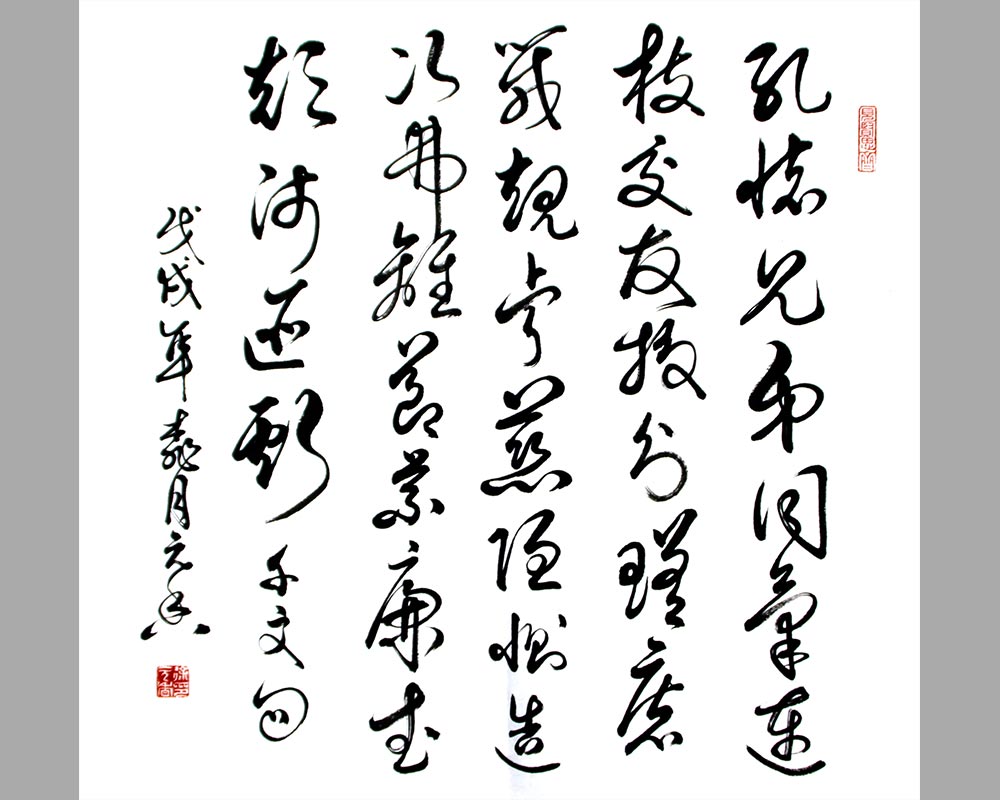 孔懷兄弟同氣連
枝交友投分磨
箴規慈隱惻造
次弗離節義廉退
顛沛匪虧千文句
戊戌年桃月元香